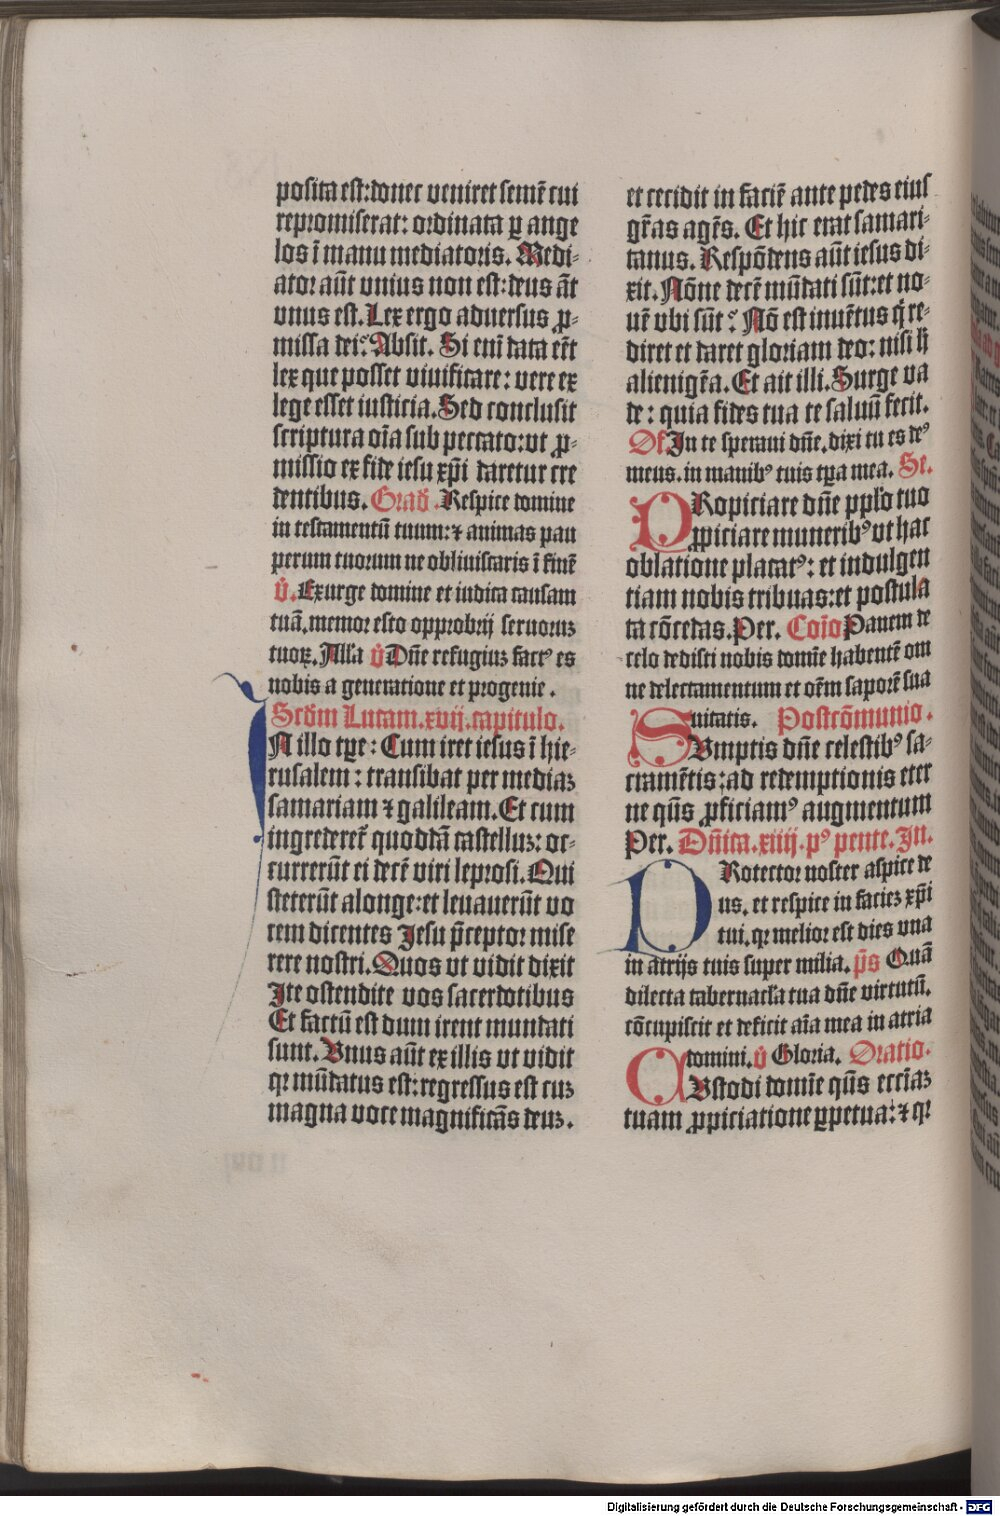 posita est: donec veniret semē cui
repromiserat: ordinata ꝑ ange
los ī manu mediatoris. Medi-
ator aūt vnius non est: deus āt
vnus est. Lex ergo aduersus ꝓ-
missa dei? Absit. Si eni data eēt
lex que posset viuificare: vere ex
lege esset iusticia. Sed conclusit
scriptura oīa sub peccato: vt ꝓ-
missio ex fide iesu xp̄i daretur cre
dentibus. Grad̄. Respice domine
in testamentū tuum: ⁊ animas pau
perum tuorum ne obliuiscaris ī finē
v̄. Exurge domine et iudica causam
tuā. memor esto opprobrij seruoruꝫ
tuoꝝ. Alla v̄ Dn̄e refugiuꝫ factꝰ es
nobis a generatione et progenie.
Scd̄m Lucam. xvij. capitulo.
IN illo tp̄e: Cum iret iesus ī hie-
rusalem: transibat per mediaꝫ
samariam ⁊ galileam. Et cum
ingrederet᷑ quoddā castelluꝫ: oc-
currerūt ei decē viri leprosi. Qui
steterūt alonge: et leuauerūt vo
cem dicentes Jesu p̄ceptor mise
rere nostri. Quos vt vidit dixit
Ite ostendite vos sacerdotibus
Et factū est dum irent mundati
sunt. Vnus aūt ex illis vt vidit
qꝛ mūdatus est: regressus est cuꝫ
magna voce magnificās deuꝫ.
et cecidit in faciē ante pedes eius
gr̄as agēs. Et hic erat samari-
tanus. Respōdens aūt iesus di-
xit. Nōne decē mūdati sūt: et no-
uē vbi sūt? Nō est inuētus q̇ re-
diret et daret gloriam deo: nisi h̄
alienigēa. Et ait illi. Surge va
de: quia fides tua te saluū fecit.
Of. In te speraui dn̄e. dixi tu es deꝰ
meus. in manibꝰ tuis tp̄a mea. Se.
PRopiciare dn̄e pp̄lo tuo
ꝓpiciare muneribꝰ vt hac
oblatione placatꝰ: et indulgen
tiam nobis tribuas: et postula
ta cōcedas. Per. Coīo Panem de
celo dedisti nobis domīe habentē om
ne delectamentum et oēm saporē sua
uitatis. Postcōmunio.
SVmptis dn̄e celestibꝰ sa-
cramētis: ad redemptionis eter
ne qūs ꝓficiamꝰ augmentum
Per. Dn̄ica. xiiij. pꝰ pente. In.
PRotector noster aspice de
us. et respice in facieꝫ xp̄i
tui. qꝛ melior est dies vna
in atrijs tuis super milia. p̄s Quā
dilecta tabernacl̄a tua dn̄e virtutū.
cōcupiscit et deficit aīa mea in atria
domini. v̄ Gloria. Oratio.
CVstodi domīe qūs eccīaꝫ
tuam ꝓpiciatione ꝑpetua: ⁊ qꝛ
Digitalisierung gefördert durch die Deutsche Forschungsgemeinschaft - DFG